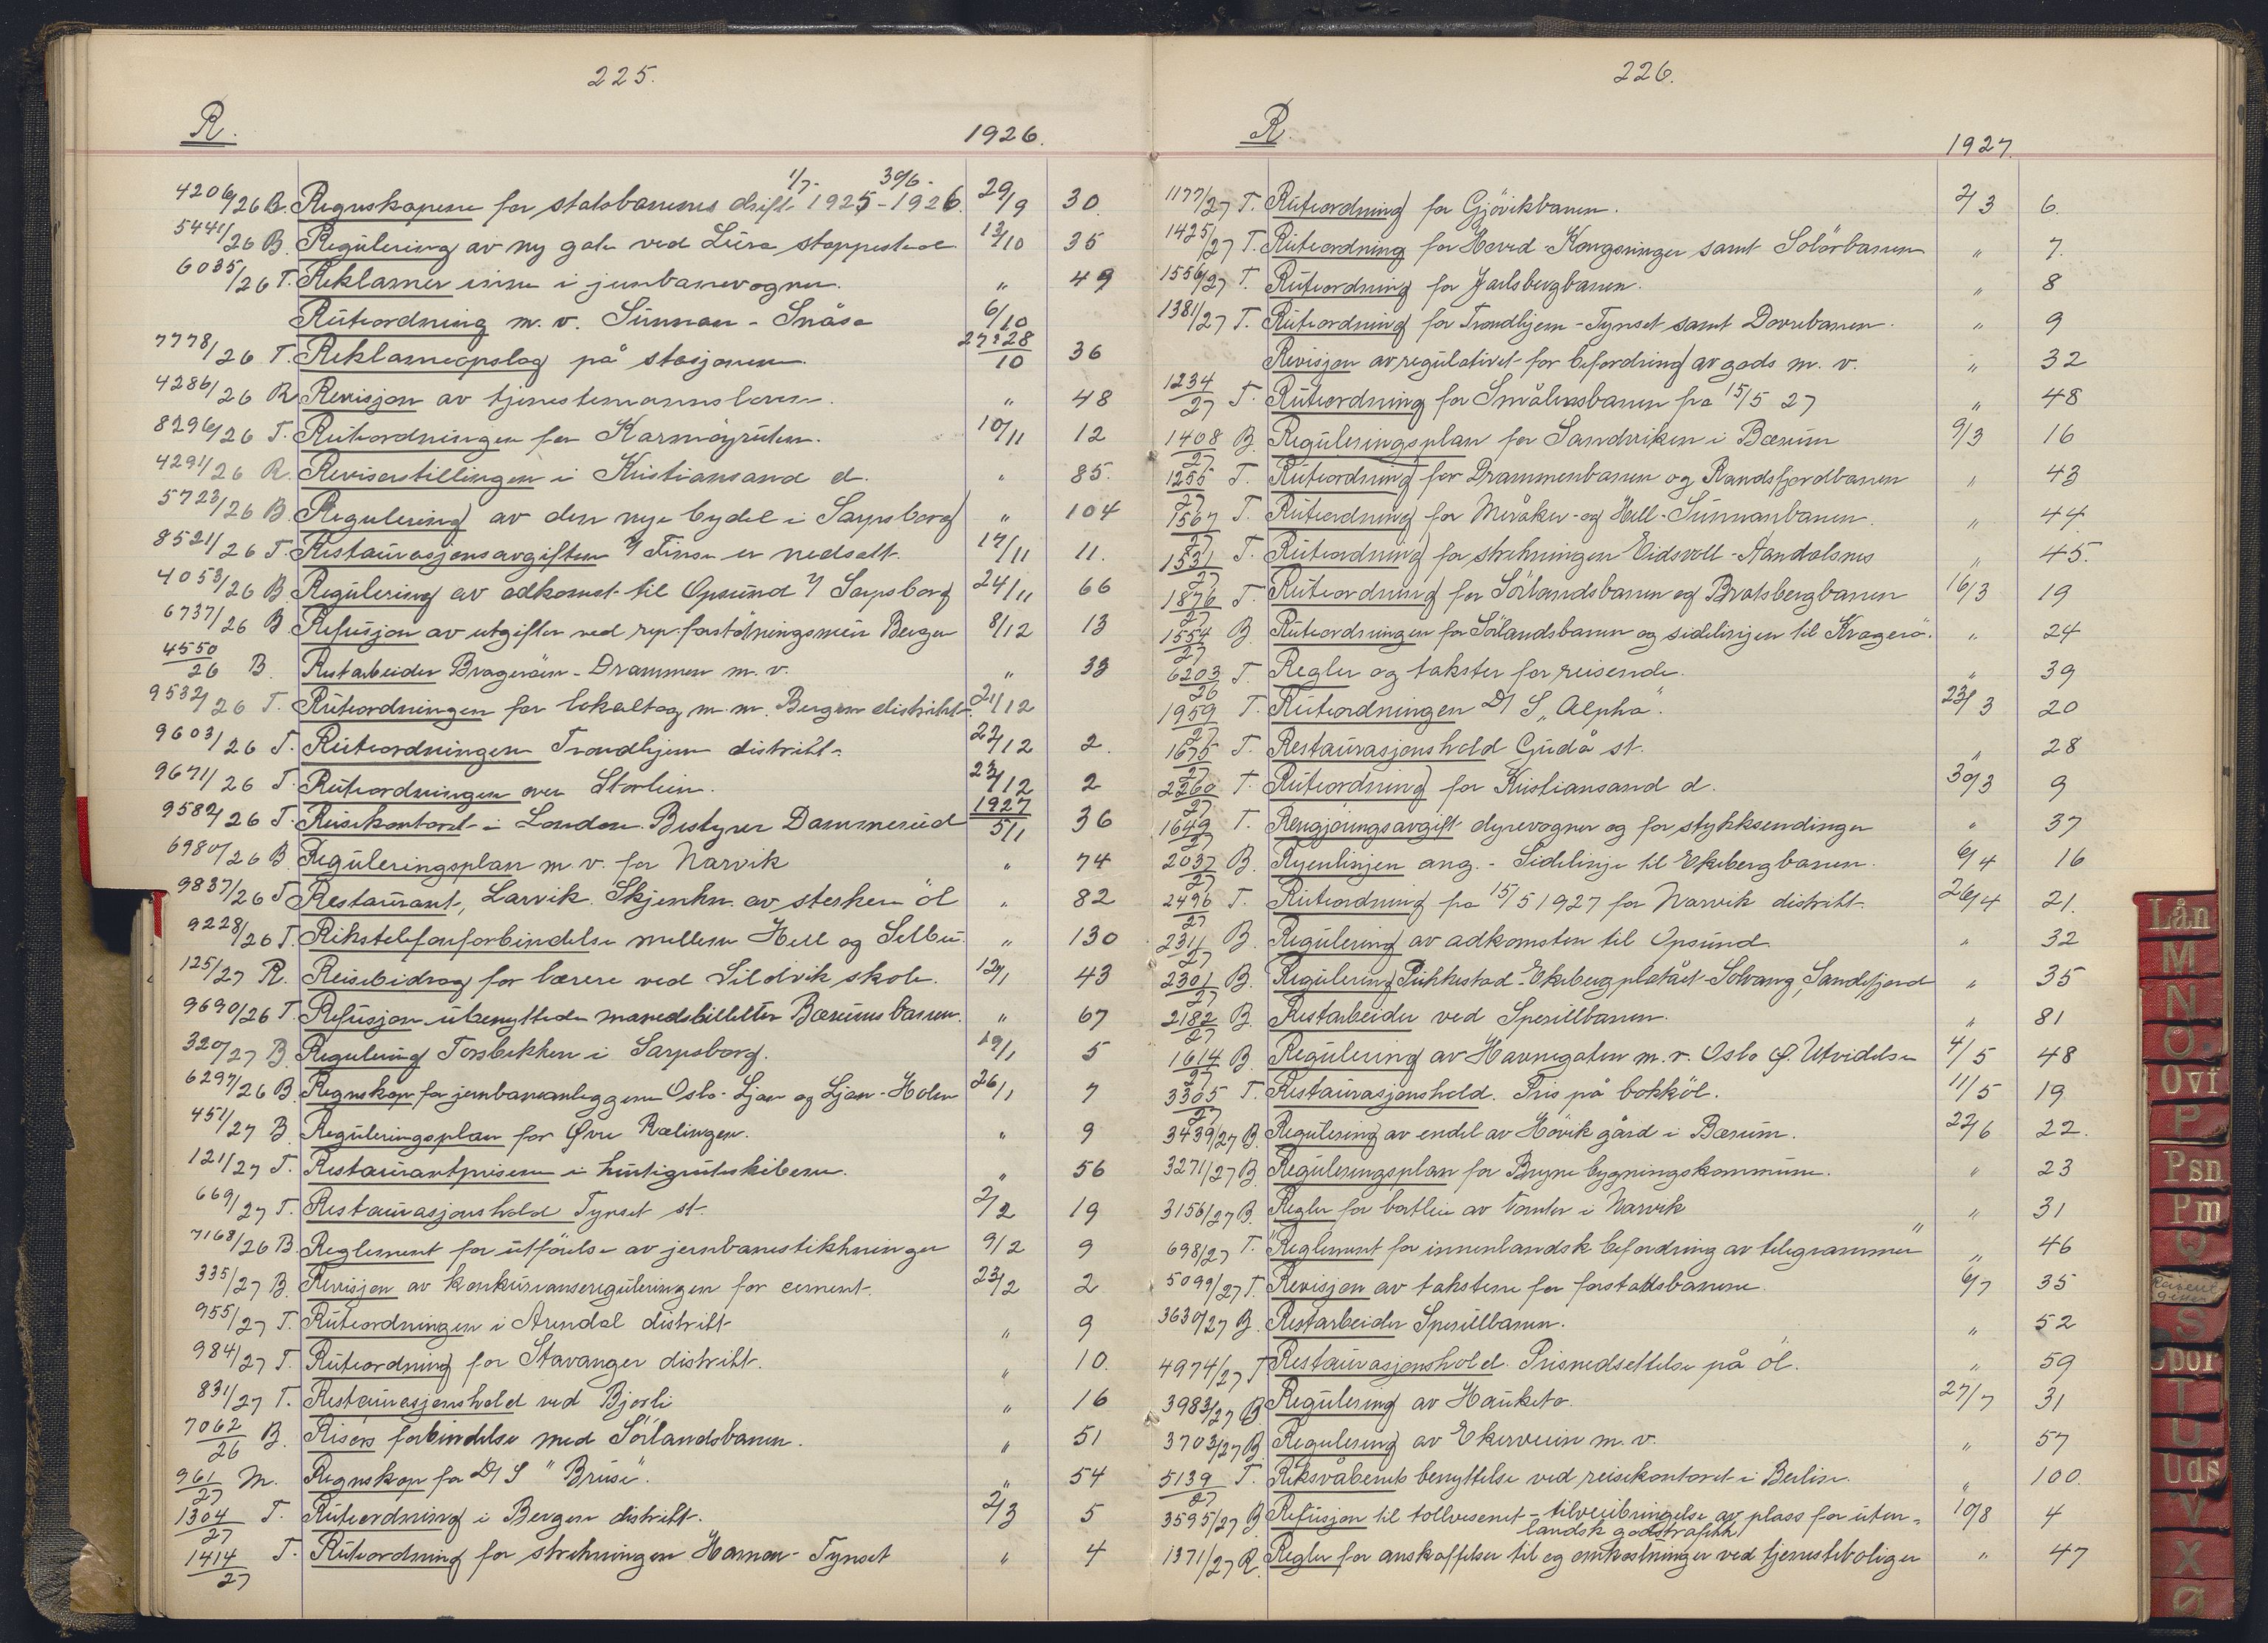 225.
R.
1926.
4206/26 B. Regnskapene for statsbanenes drift 1/7-1925 - 30/6-1926. 29/9 30.
5441/26 B. Regulering av ny gate ved Lura stoppested 13/10 35
6035/26 T. Reklamer inne i jernbanevogner. " 49
Ruteordning m. v. Sunnan - Snåsa 6/10
7778/26 T. Reklameopslag på stasjonene. 27 & 28/10 36
4286/26 R. Revisjon av tjenestemannsloven. " 48
8296/26 T. Ruteordningen for Karmøyruten. 10/11 12
4291/26 R. Revisorstillingen i Kristiansand d. " 85.
5723/26 B. Regulering av den nye bydel i Sarpsborg " 104
8521/26 T. Restaurasjonsavgiften Tinse er nedsatt. 17/11 11.
4053/26 B. Regulering av adkomst til Opsund Sarpsborg 24/11 66
6737/26 B. Refusjon av utgifter ved rep. forstøtningsmur Bergen 8/12 13
4550/26 B. Restarbeider Bragerøen - Drammen m. v. " 33
9532/26 T. Ruteordningen for lokaltog m. m. Bergen distrikt. 21/12
9603/26 T. Ruteordningen Trondhjem distrikt. 22/12 2.
9671/26 T. Ruteordningen over Storlien. 23/12 2
9582/26 T. Reisekontoret i London. Bestyrer Dammerud 1927 5/1 36
6980/26 B. Reguleringsplan m. v. for Narvik " 74
9837/26 T. Restaurant, Larvik. Skjenkn. av sterkere öl " 82
9228/26 T. Rikstelefonforbindelse mellem Hell og Selbu. " 130
125/27 R. Reisebidrag for lærere ved Sildvik skole. 12/1 43
9690/26 T. Refusjon ubenyttede månedsbilletter Bærumsbanen. " 67
320/27 B. Regulering Torsbekken i Sarpsborg. 19/1 5
6297/26 B. Regnskap for jernbaneanleggene Oslo - Ljan og Ljan - Holm 26/1 7
451/27 B. Reguleringsplan for Øvre Rælingen. " 9
121/27 T. Restaurantprisene i hurtigruteskibene. " 56
669/27 T. Restaurasjonshold Tynset st. 2/2 19
7168/26 B. Reglement for utførelse av jernbanestikkninger 9/2 9
335/27 B. Revisjon av konkurranseguleringen for cement. 23/2 2
955/27 T. Ruteordningen i Arendal distrikt " 9
984/27 T. Ruteordning for Stavanger distrikt. " 10.
831/27 T. Restaurasjonshold ved Bjorli " 16
7062/26 B. Risørs forbindelse med Sörlandsbanen. " 51
961/27 M. Regnskap for D/S "Bruse". " 54
1304/27 T. Ruteordning i Bergen distrikt. 2/3 5
1414/27 T. Ruteordning for strekningen Hamar - Tynset " 4
226.
R.
1927.
1177/27 T. Ruteordning for Gjövikbanen. 2/3 6.
1425/27 T. Ruteordning for Hoved - Kongsvinger samt Solörbanen " 7.
1556/27 T. Ruteordning for Jarlsbergbanen. " 8
1381/27 T. Ruteordning for Trondhjem - Tynset samt Dovrebanen. " 9
Revisjon av regulativet for befordring av gods m. v. " 32
1234/27 T. Ruteordning for Smålensbanen fra 15/5 27 " 48
1408/27 B. Reguleringsplan for Sandviken i Bærum 9/3 16
1255/27 T. Ruteordning for Drammenbanen og Randsfjordbanen " 43
1567/27 T. Ruteordning for Meråker- og Hell - Sunnanbanen. " 44
1531/27 T. Ruteordning for strekningen Eidsvoll - Aandalsnes " 45.
1876/27 T. Ruteordning for Sörlandsbanen og Bratsbergbanen 16/3 19
1554/27 B. Ruteordningen for Sörlandsbanen og sidelinjen til Kragerö. " 24
6203/26 T. Regler og takster for reisende. " 39
1959/27 T. Ruteordningen D/S "Alpha". 23/3 20
1675/27 T. Restaurasjonshold Gudå st. " 28
2260/27 T. Ruteordning for Kristiansand d. 30/3 9
1649/27 T. Rengjøringsavgift dyrevogner og for stykksendinger " 37
2037/27 B. Ryenlinjen ang. - Sidelinje til Ekebergbanen. 6/4 16
2496/27 T. Ruteordning fra 15/5 1927 for Narvik distrikt. 26/4 21.
2311/27 B. Regulering av adkomsten til Opsund " 32
2301/27 B. Regulering Pukkestad - Ekeberg platået - Solvang, Sandefjord " 35
2182/27 B. Restarbeider ved Sperillbanen. " 81
1614/27 B. Regulering av Havnegaten m. v. Oslo Ø. Utvidelse 4/5 48
3305/27 T. Restaurasjonshold. Pris på bokköl. 11/5 19
3439/27 B. Regulering av endel av Hövik gård i Bærum. 22/6 22.
3271/27 B. Reguleringsplan for Bryne bygningskommune. " 23
3156/27 B. Regler for bortleie av tomter i Narvik " 31
698/27 T. "Reglement for innenlandsk befordring av telegrammer" " 46
5099/27 T. Revisjon av takstene for forstadsbanene. 6/7 35
3630/27 B. Restarbeider Sperillbanen. " 52
4974/27 T. Restaurasjonshold. Prisnedsettelse på öl. " 59
3983/27 B. Regulering av Hauketo. 27/7 31
3703/27 B. Regulering av Ekerveien m. v. " 57
5139/27 T. Riksvåbenets benyttelse ved reisekontoret i Berlin. " 100.
3595/27 B. Refusjon til tollvesenet - tilveiebringelse av plass for uten- 10/8 4
landsk godstrafikk
1371/27 R. Regler for anskaffelser til og omkostninger ved tjenesteboliger " 47
Lån
M
N
O
Ovf
P
Psn
Pm
Q
S
Spor
T
U
Uds
V
X
Ø